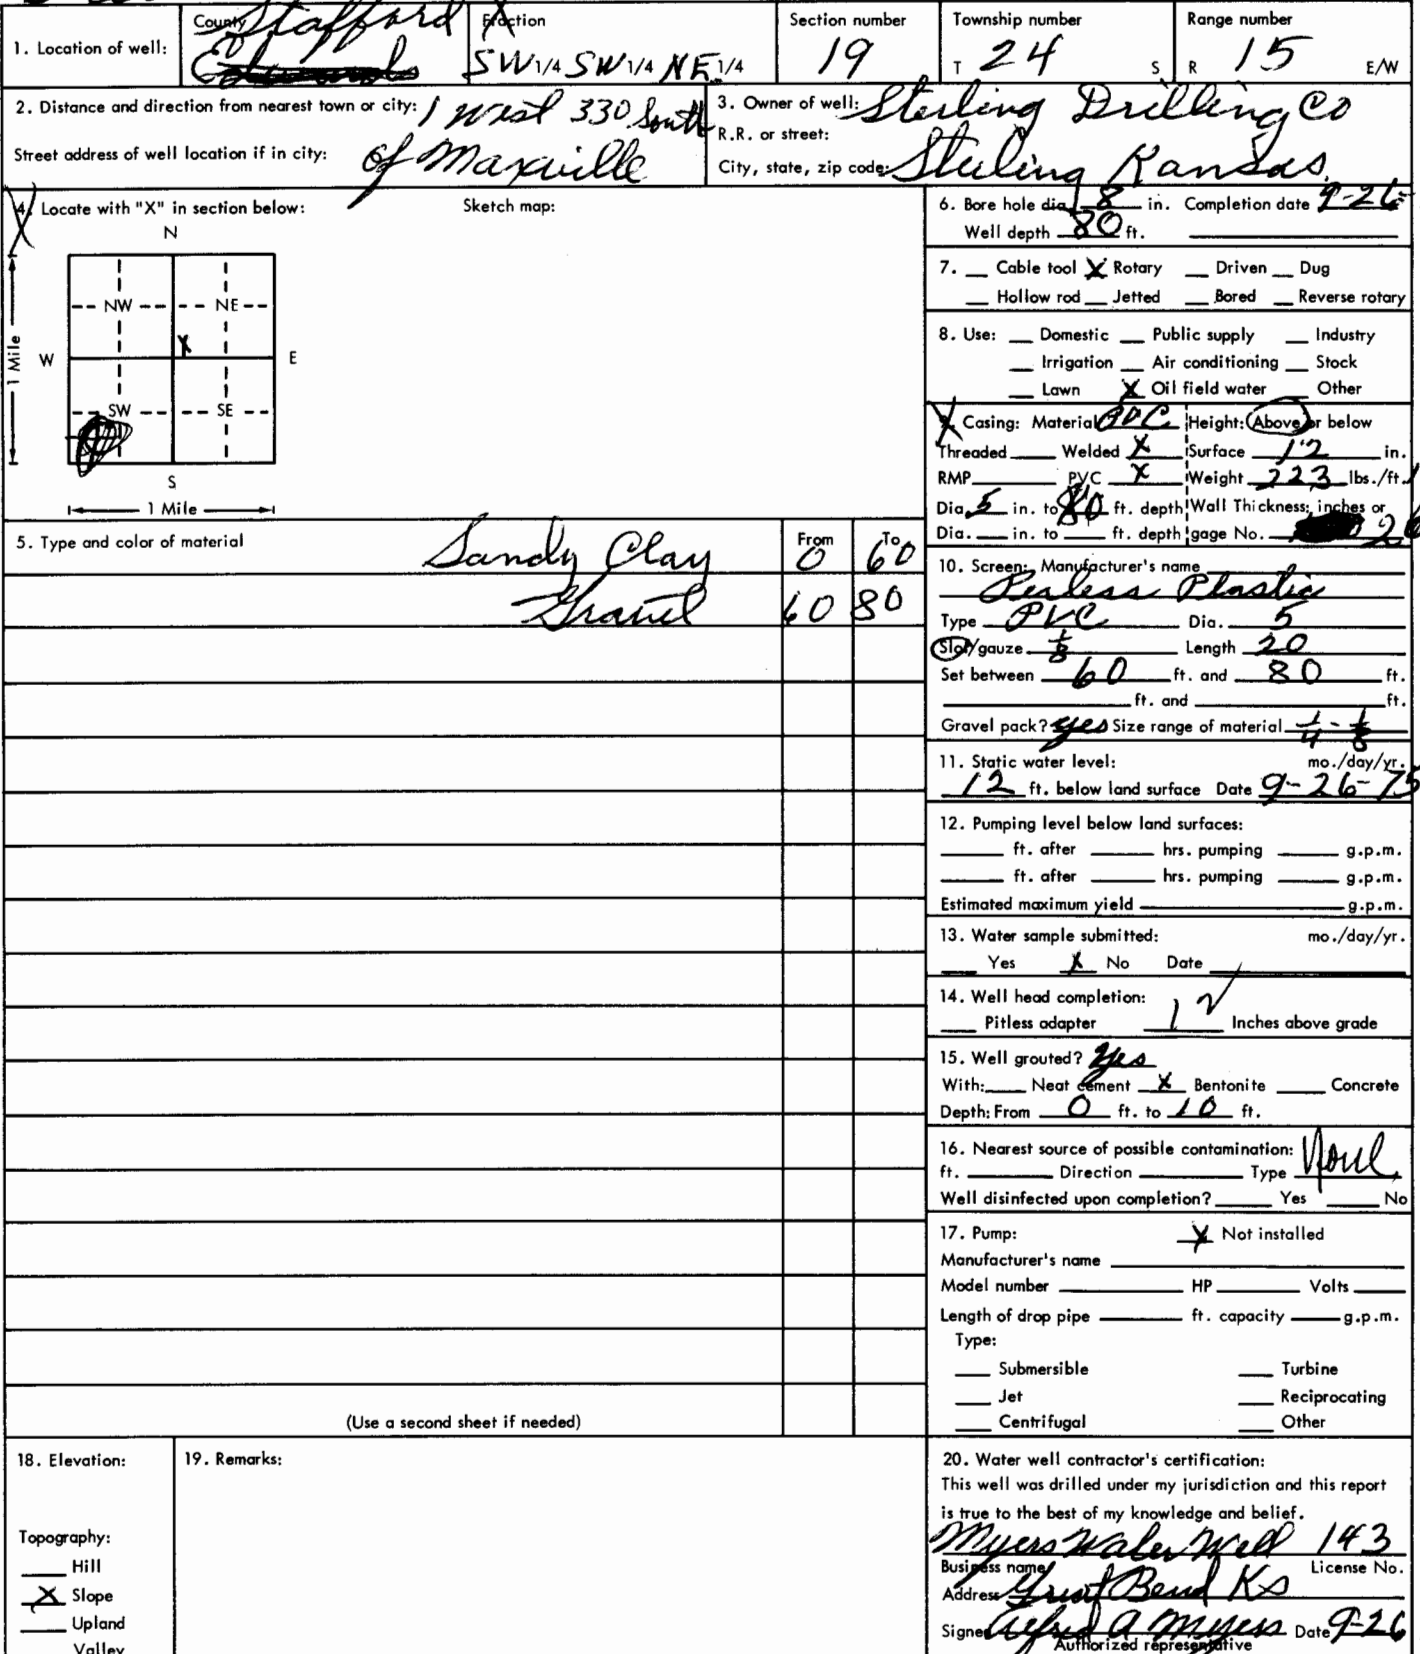 County Stafford Fraction Section number Township number Range number
1. Location of well: SW 1/4 SW 1/4 NE 1/4 19 T 24 S R 15 E/W
2. Distance and direction from nearest town or city: 1 West 330 South
of Maxville
Street address of well location if in city:
3. Owner of well: Sterling Drilling Co
R.R. or street:
City, state, zip code: Sterling Kansas.
4. Locate with "X" in section below: Sketch map:
N
NW NE
X
W E
1 Mile
SW SE
S
1 Mile
5. Type and color of material From To
Sandy Clay 0 60
Gravel 60 80
(Use a second sheet if needed)
6. Bore hole dia. 8 in. Completion date 9-26
Well depth 80 ft.
7. Cable tool X Rotary Driven Dug
Hollow rod Jetted Bored Reverse rotary
8. Use: Domestic Public supply Industry
Irrigation Air conditioning Stock
Lawn X Oil field water Other
9. Casing: Material Height: Above or below
Threaded Welded X Surface 12 in.
RMP PVC X Weight 223 lbs./ft.
Dia. 5 in. to 80 ft. depth Wall Thickness: inches or
Dia. in. to ft. depth gage No.
10. Screen: Manufacturer's name
Perless Plastic
Type PVC Dia. 5
Slot/gauze 1/8 Length 20
Set between 60 ft. and 80 ft.
ft. and ft.
Gravel pack? yes Size range of material 1/4 - 1/8
11. Static water level: mo./day/yr.
12 ft. below land surface Date 9-26-75
12. Pumping level below land surfaces:
ft. after hrs. pumping g.p.m.
ft. after hrs. pumping g.p.m.
Estimated maximum yield g.p.m.
13. Water sample submitted: mo./day/yr.
Yes X No Date
14. Well head completion:
Pitless adapter 12 Inches above grade
15. Well grouted? Yes
With: Neat cement X Bentonite Concrete
Depth: From 0 ft. to 10 ft.
16. Nearest source of possible contamination:
ft. Direction Type None
Well disinfected upon completion? Yes No
17. Pump: X Not installed
Manufacturer's name
Model number HP Volts
Length of drop pipe ft. capacity g.p.m.
Type:
Submersible Turbine
Jet Reciprocating
Centrifugal Other
18. Elevation:
Topography:
Hill
X Slope
Upland
Valley
19. Remarks:
20. Water well contractor's certification:
This well was drilled under my jurisdiction and this report
is true to the best of my knowledge and belief.
Myers Water Well 143
Business name License No.
Address Great Bend Ks
Signed Alfred A Myers Date 9-26
Authorized representative